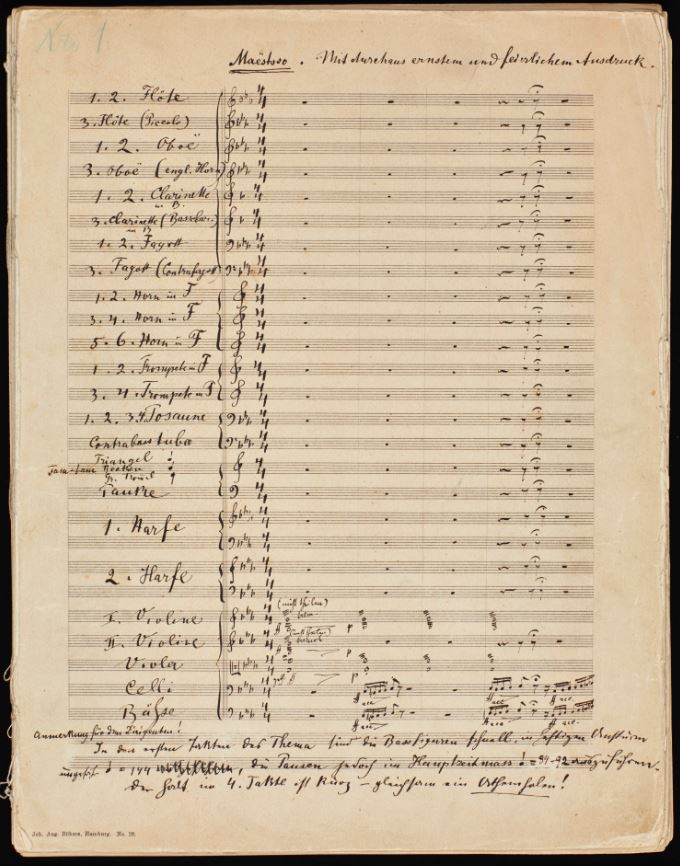 No. 1
Maëstoso. Mit durchaus ernstem und feierlichem Ausdruck.
1. 2. Flöte
3. Flöte (Piccolo)
1. 2. Oboë
3. Oboë (engl. Horn)
1. 2. Clarinette
in B.
3. Clarinette (Bassclar.)
in B
1. 2. Fagott
3. Fagott (Contrafagott)
1. 2. Horn in F
3. 4. Horn in F
5. 6. Horn in F
1. 2. Trompete in F
3. 4. Trompete in F
1. 2. 3. 4. Posaune
Contrabass tuba
Triangel
Tam-tam Becken
Gr. Trommel
Pauke
1. Harfe
2. Harfe
I. Violine
II. Violine
Viola
Celli
Bäße
Anmerkung für den Dirigenten!
In den ersten Takten des Thema sind die Bassfiguren schnell, in heftigem Ansturm
ungefähr = 144, die Pausen jedoch im Hauptzeitmass = 84-92 auszuführen.
Der Halt im 4. Takte ist kurz – gleichsam ein Athemholen!
Joh. Aug. Böhme, Hamburg. No. 18.